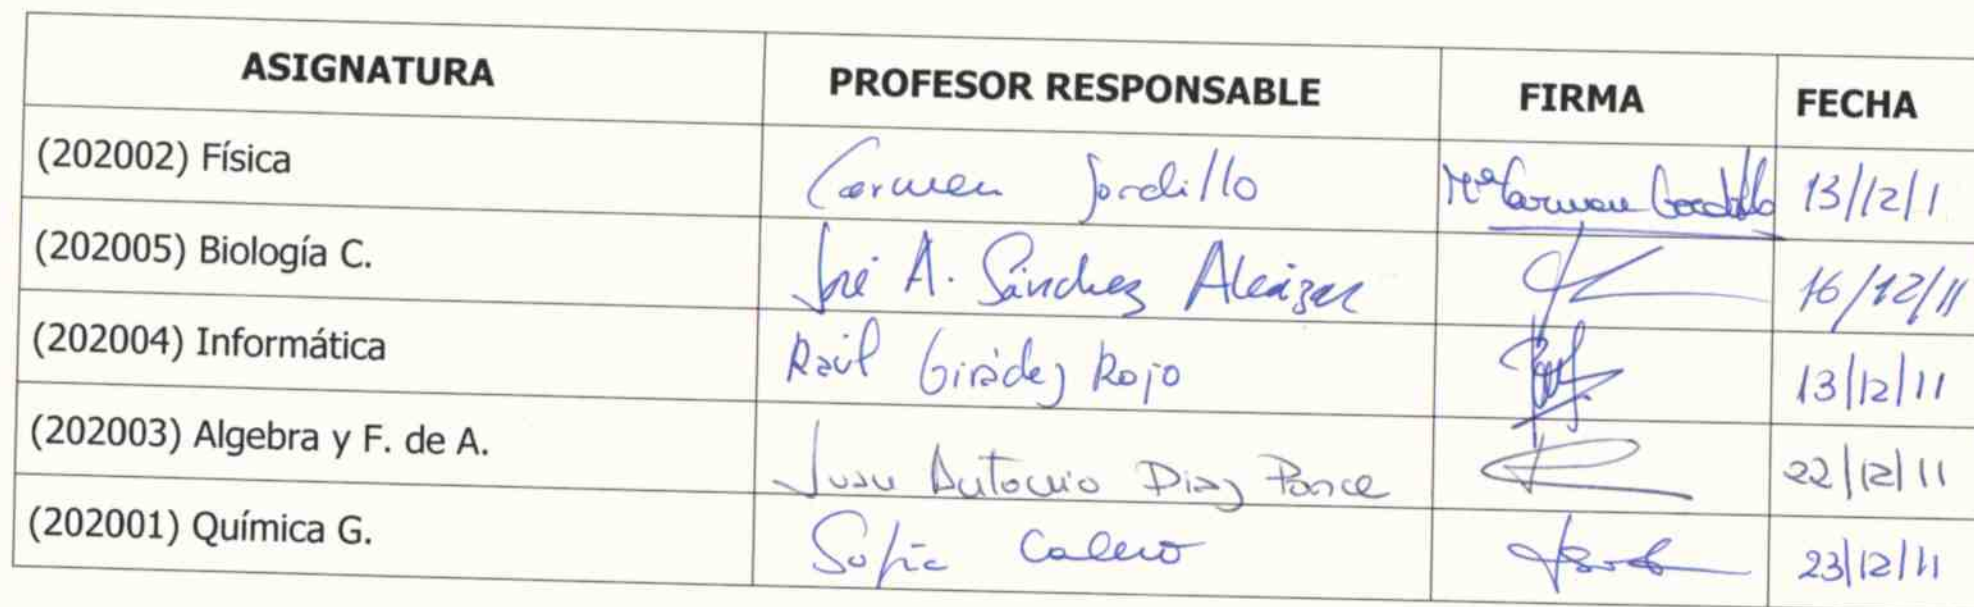 ASIGNATURA PROFESOR RESPONSABLE FIRMA FECHA
(202002) Física Carmen Gordillo Mª Carmen Gordillo 13/12/1
(202005) Biología C. José A. Sánchez Alcázar 16/12/11
(202004) Informática Raúl Giráldez Rojo 13/12/11
(202003) Algebra y F. de A. Juan Antonio Díaz Ponce 22/12/11
(202001) Química G. Sofía Calero 23/12/11